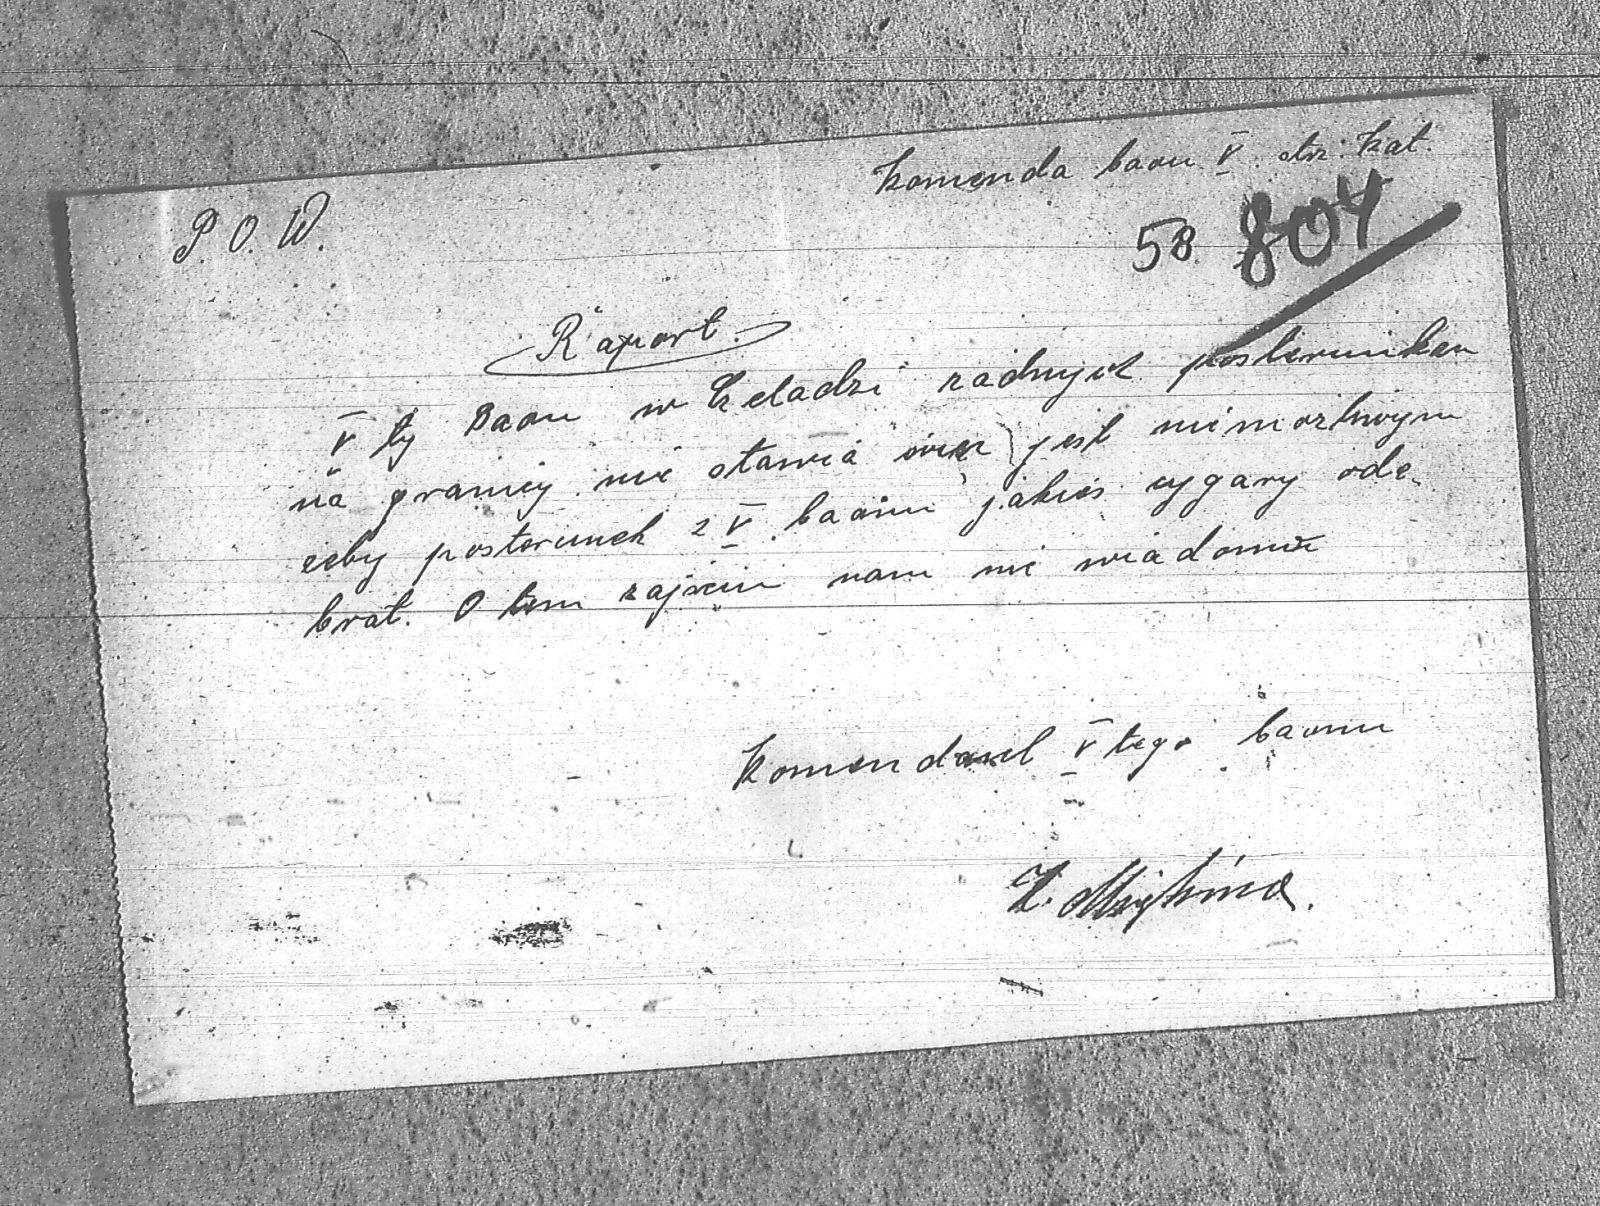 Komenda baou V. str: Kat.
P. O. W.
58 804
Raport.
V ty Baon w Czeladzi żadnych posterunków
na granicy nie stawia więc jest niemożliwym
żeby posterunek z V baonu jakieś cygary ode-
brał. O tem zajściu nam nie wiadomo
Komendant V tego baonu